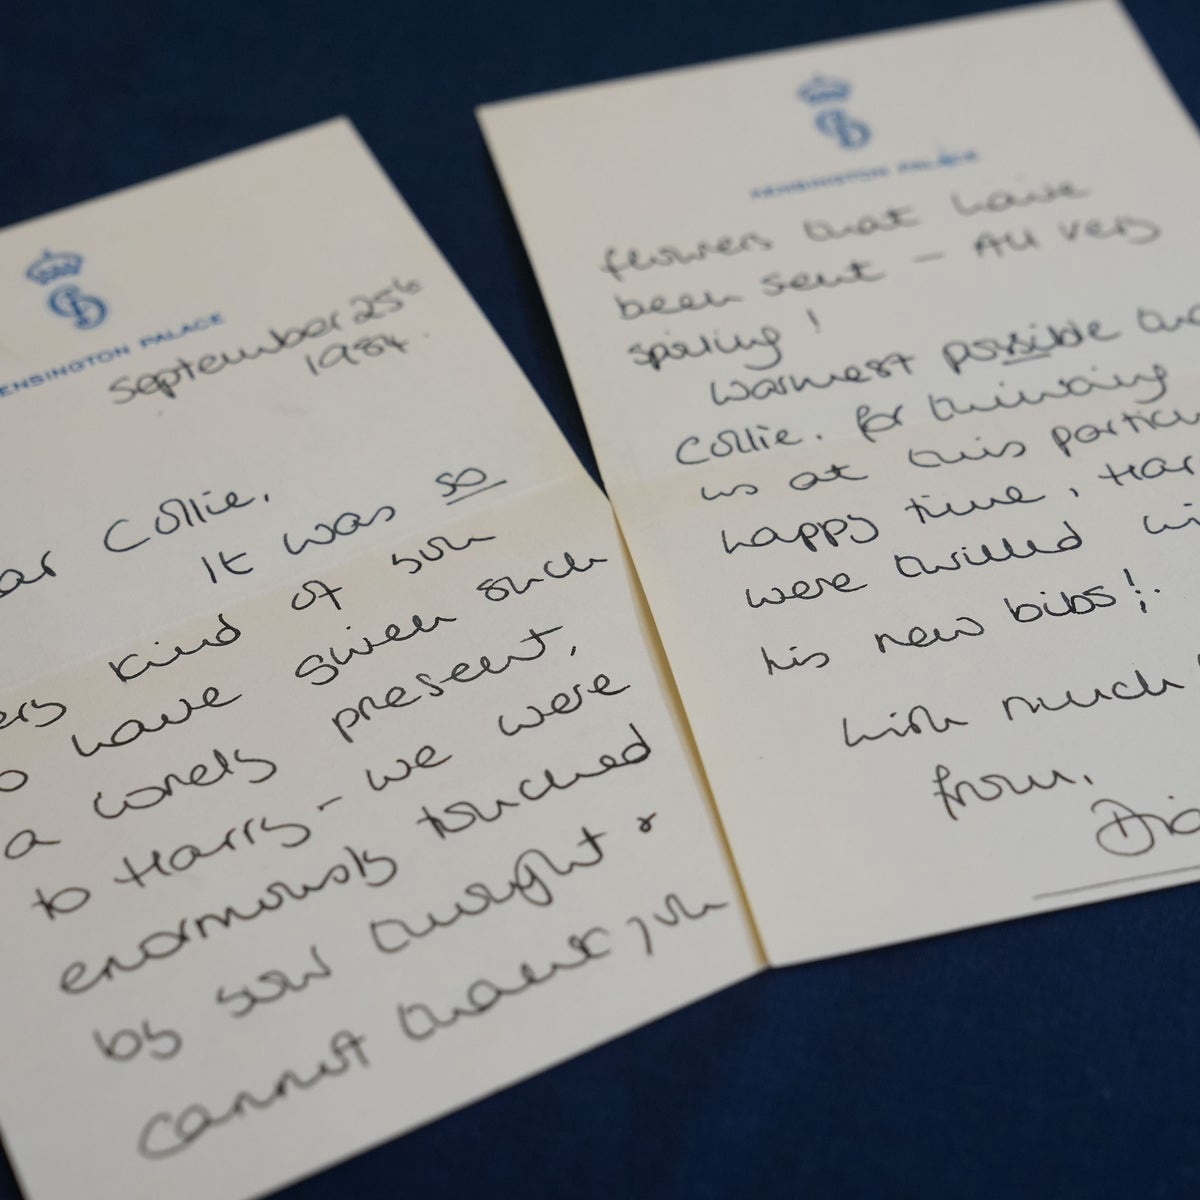 ENSINGTON PALACE
September 25th
1984.
ar Collie,
It was so
ery kind of you
o have given such
a lovely present,
to Harry - we were
enormously touched
by your thought &
cannot thank you
KENSINGTON PALACE
flowers that have
been sent - All very
spoiling!
Warmest possible tha
Collie. for thinking
us at this particu
happy time, Har
were thrilled wi
his new bibs!.
With much
from,
Dia